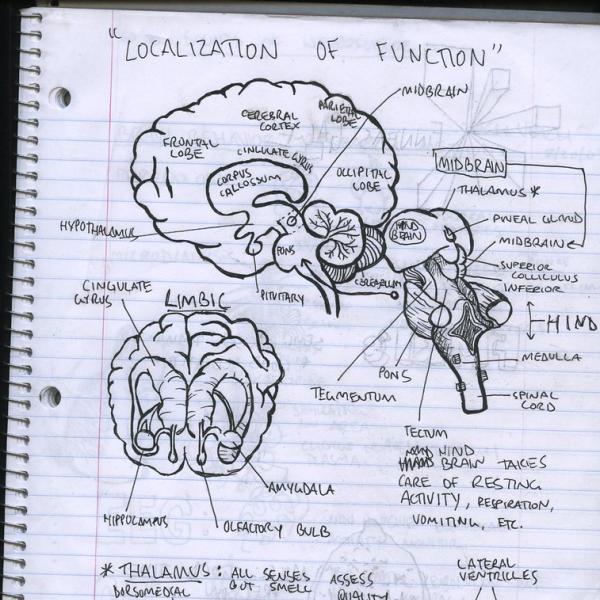 "LOCALIZATION OF FUNCTION"
MIDBRAIN
PARIETAL
LOBE
CEREBRAL
CORTEX
FRONTAL
LOBE
CINGULATE GYRUS
CORPUS
CALLOSUM
OLLIPITAL
LOBE
MIDBRAIN
THALAMUS *
HIND
BRAIN
PINEAL GLAND
MIDBRAIN
HYPOTHALAMUS
PONS
SUPERIOR
COLLICULUS
INFERIOR
CEREBELLUM
PITUITARY
CINGULATE
GYRUS
LIMBIC
HIND
MEDULLA
PONS
TEGMENTUM
SPINAL
CORD
TECTUM
HIND
BRAIN TAKES
CARE OF RESTING
ACTIVITY, RESPIRATION,
VOMITING, ETC.
AMYGDALA
HIPPOCAMPUS
OLFACTORY BULB
* THALAMUS: ALL SENSES
BUT SMELL
DORSOMEDIAL
ASSESS
QUALITY
LATERAL
VENTRICLES